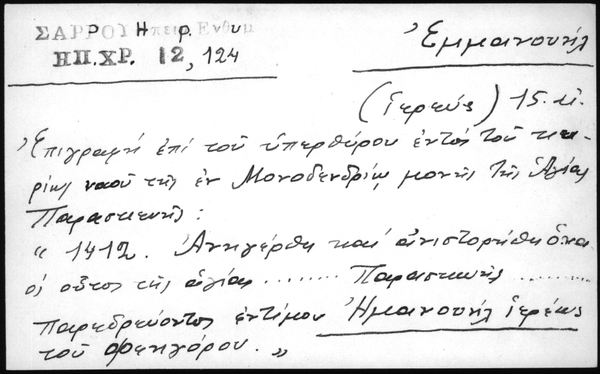 ΣΑΡΡΟΥ Ηπειρ. Ενθυμ
ΗΠ.ΧΡ. 12, 124
Ἐμμανουήλ
(ἱερεύς) 15. αἰ.
Ἐπιγραφή ἐπί τοῦ ὑπερθύρου ἐντός τοῦ κυ-
ρίως ναοῦ τῆς ἐν Μονοδενδρίῳ μονῆς τῆς Ἁγίας
Παρασκευῆς:
« 1412. Ἀνηγέρθη καί ἀνιστορήθη ὁ να
ός οὗτος τῆς ἁγίας ........ Παρασκευῆς ........
παρεδρεύοντος ἐντίμου Ἠμανουήλ ἱερέως
τοῦ . »